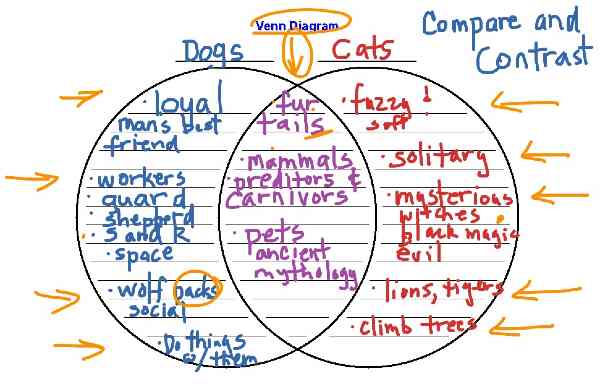 Venn Diagram
Compare and
Contrast
Dogs
Cats
· loyal
mans best
friend
· workers
· guard
· shepherd
· S and R
· space
· wolf packs
social
· Do things
w/them
· fur
tails
· mammals
preditors &
carnivors
· pets
ancient
mythology
· fuzzy!
soft
· solitary
· mysterious
witches
black magic
evil
· lions, tigers
· climb trees